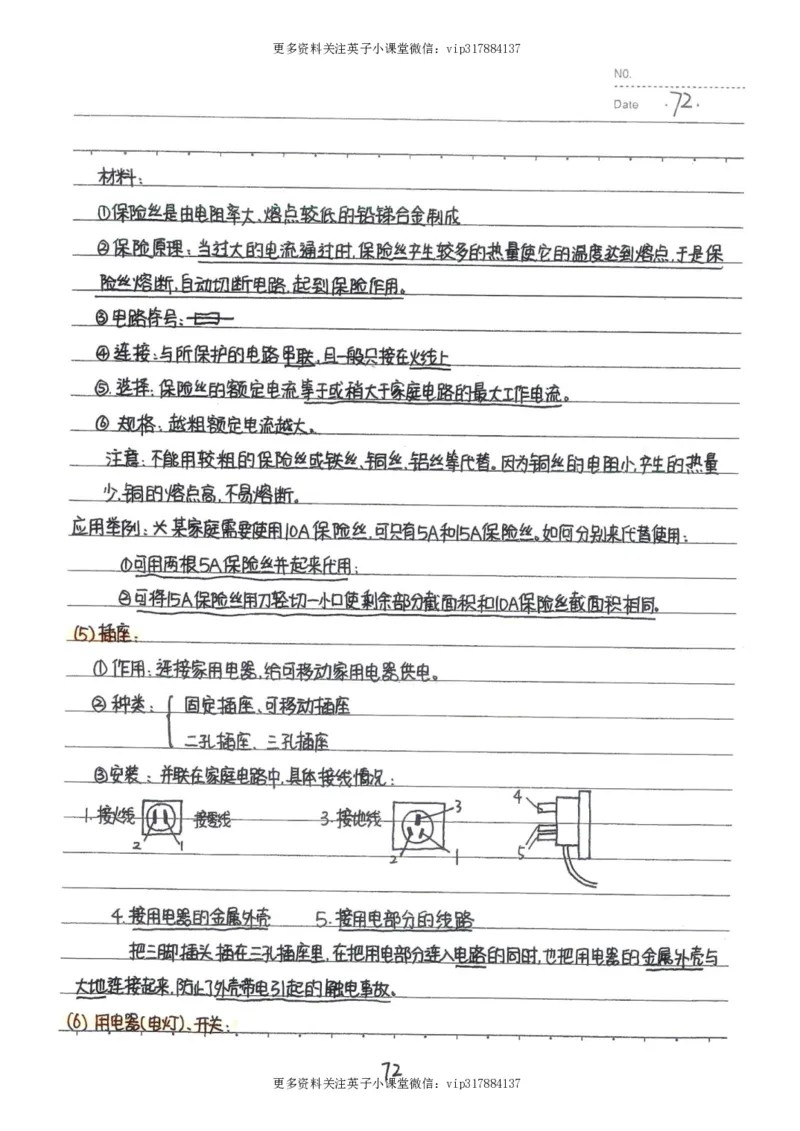 更多资料关注英子小课堂微信：vip317884137
NO.
Date ·72·
材料：
①保险丝是由电阻率大、熔点较低的铅锑合金制成
②保险原理：当过大的电流通过时,保险丝产生较多的热量使它的温度达到熔点,于是保
险丝熔断,自动切断电路,起到保险作用。
③电路符号：
④连接：与所保护的电路串联,且一般只接在火线上
⑤.选择：保险丝的额定电流等于或稍大于家庭电路的最大工作电流。
⑥ 规格：越粗额定电流越大。
注意：不能用较粗的保险丝或铁丝、铜丝、铝丝等代替。因为铜丝的电阻小,产生的热量
少,铜的熔点高,不易熔断。
应用举例：※某家庭需要使用10A保险丝,可只有5A和15A保险丝。如何分别来代替使用：
①可用两根5A保险丝并起来代用；
②可将15A保险丝用刀轻切一小口使剩余部分截面积和10A保险丝截面积相同。
(5)插座：
①作用：连接家用电器,给可移动家用电器供电。
②种类： 固定插座、可移动插座
二孔插座、三孔插座
③安装：并联在家庭电路中,具体接线情况：
1.接火线 接零线 3.接地线 3 4
2 1 2 1 5
4.接用电器的金属外壳 5.接用电部分的线路
把三脚插头插在三孔插座里,在把用电部分连入电路的同时,也把用电器的金属外壳与
大地连接起来,防止了外壳带电引起的触电事故。
(6)用电器(电灯)、开关：
72
更多资料关注英子小课堂微信：vip317884137